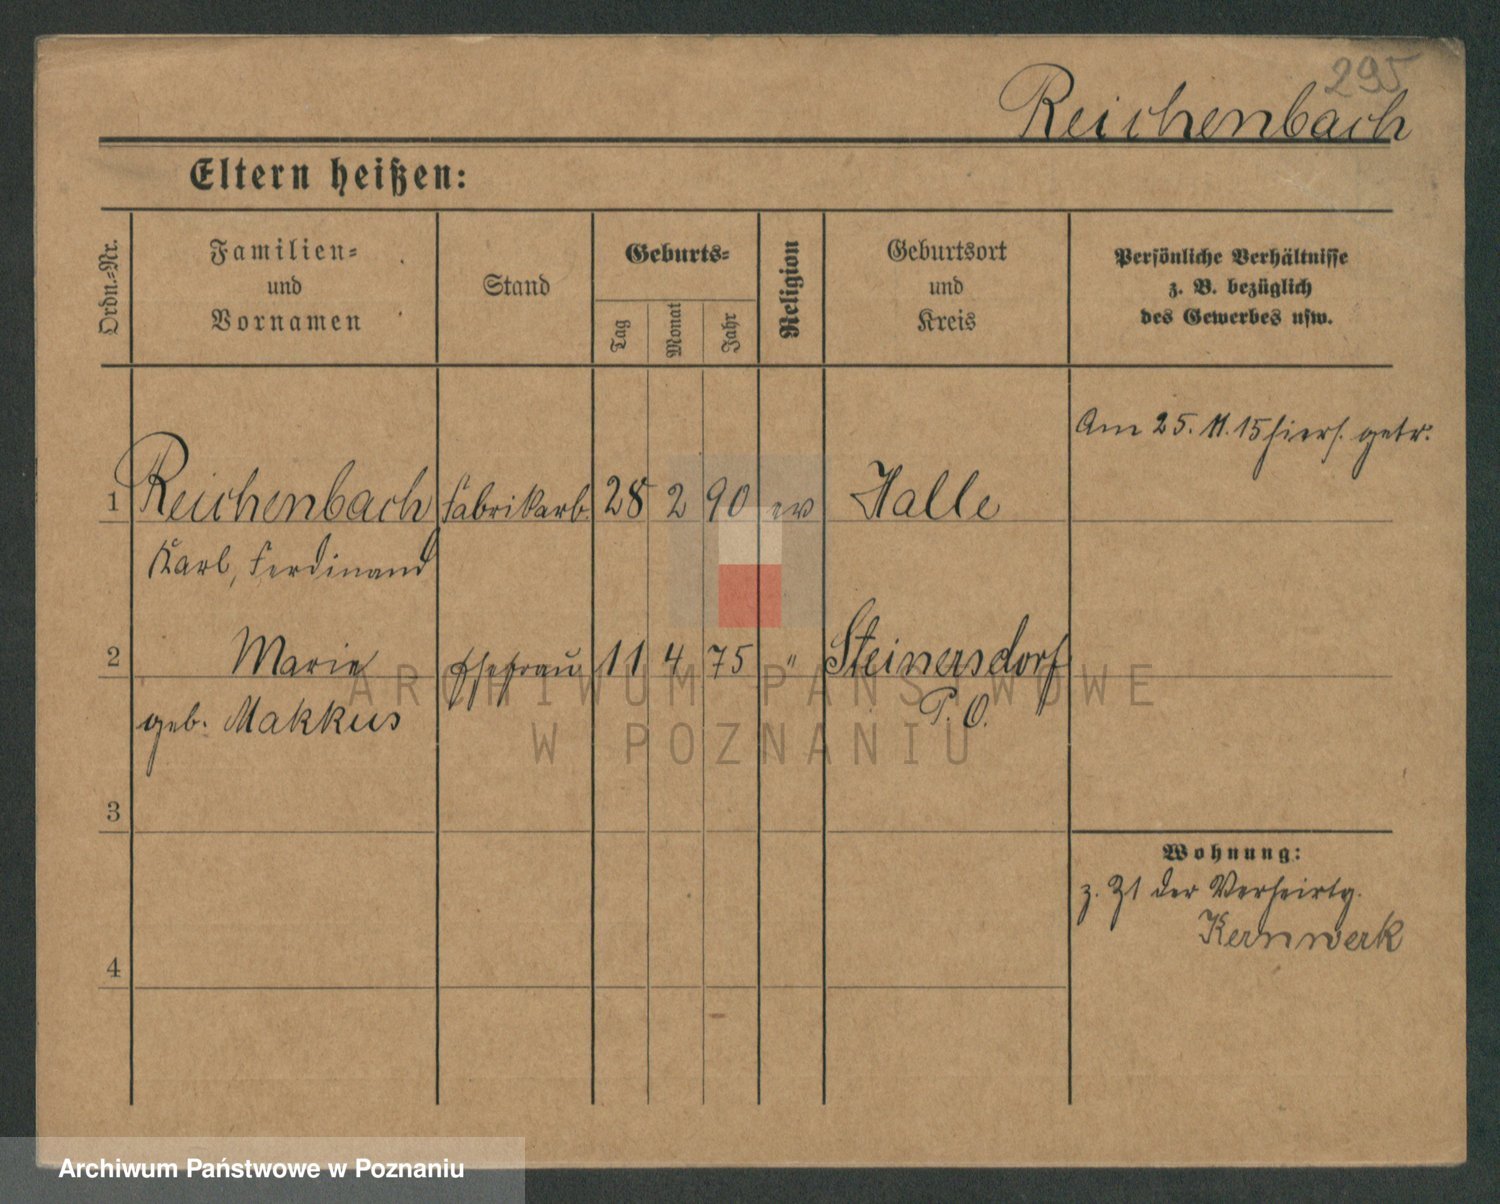 295
Reichenbach
Eltern heißen:
Ordn.-Nr.
Familien-
und
Vornamen
Stand
Geburts-
Tag
Monat
Jahr
Religion
Geburtsort
und
Kreis
Persönliche Verhältnisse
z. B. bezüglich
des Gewerbes usw.
Am 25. 11. 15 hiers. getr.
1 Reichenbach Fabrikarb. 28 2 90 ev Halle
Karl, Ferdinand
2 Marie Ehefrau 11 4 75 " Steinersdorf
geb. Makkus P. O.
3
Wohnung:
z. Zt der Verheirtg.
Kernwerk
4
ARCHIWUM PAŃSTWOWE
W POZNANIU
Archiwum Państwowe w Poznaniu